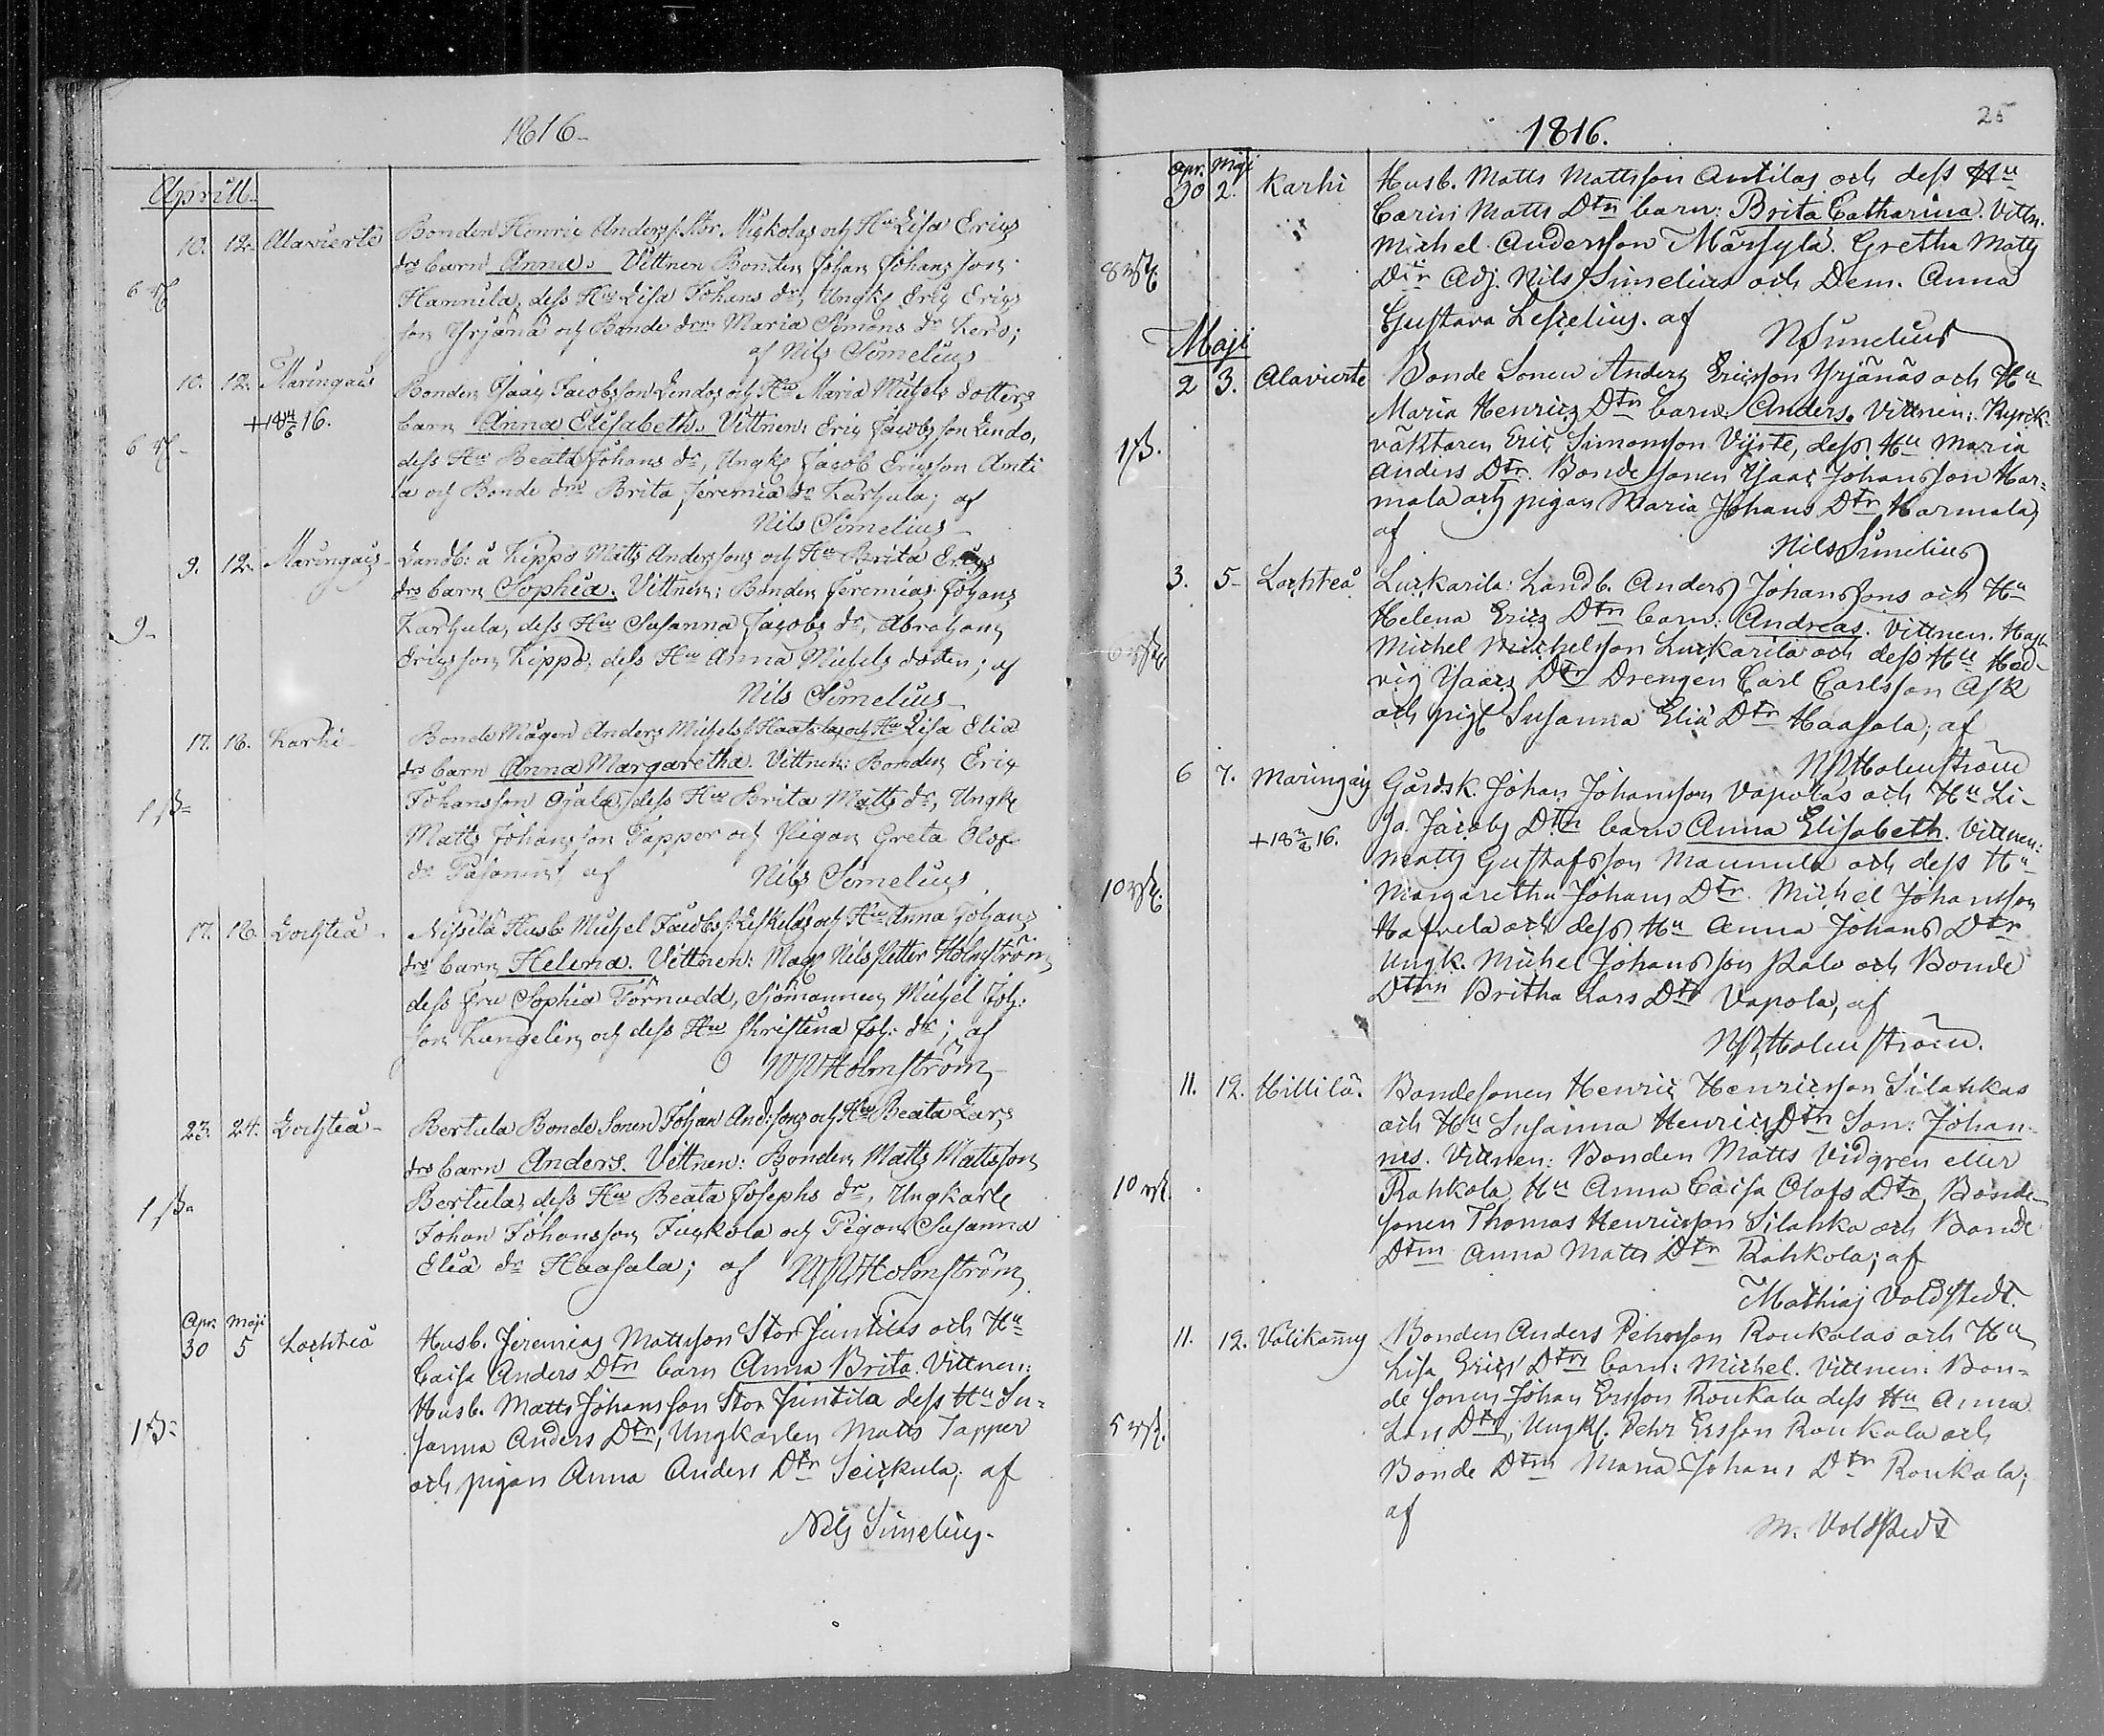 1816.
Aprill.
10. 12. Alavierte Bonden Henric Anderss. Stor Nickolas och Hu Lisa Erics
drs barn Anna. Vittnen Bonden Johan Johans son
6
Hannila, dess Hu Lisa Johans dr, Ungk. Eric Erics
son Yrjänä och Bonde drn Maria Simons dr Kero;
af Nils Simelius
10. 12. Maringais Bonden Isaac Jacobsson Lendos och Hu Maria Michels dotters
+ 18 16. barn Anna Elisabeth. Vittnen: Eric Jacobsson Lendo,
6
dess Hu Beata Johans dr, Ungk. Jacob Ericsson Anti
la och Bonde drn Brita Jeremiæ dr Karhula; af
Nils Simelius
9. 12. Maringais Landb: å Kippo Matts Anderssons och Hu Brita Erics
drs barn Sophia. Vittnen: Bonden Jeremias Johans
9 Karhula, dess Hu Susanna Jacobs dr, Abraham
Ericsson Kippo, dess Hu Anna Michels dotter; af
Nils Simelius
17. 18. Karhi Bonde Mågen Anders Michelss. Haatalas och Hu Lisa Elia
drs barn Anna Margaretha. Vittnen: Bonden Eric
1 ß Johansson Ojala, dess Hu Brita Matts dr, Ungk.
Matts Johansson Tapper och Pigan Greta Olof
dr Pasanen; af Nils Simelius
17. 18. Lochteå Nissilä Husb. Michel Jacobss. Leskeläs och Hu Anna Johans
drs barn Helena. Vittnen: Mag. Nils Petter Holmström
dess Fru Sophia Törnudd, Sjömannen Michel Joh:
son Kangelin och dess Hu Christina Joh: dr; af
NPHolmström
23. 24. Lochteå Bertula Bonde Sonen Johan And:sons och Hu Beata Lars
drs barn Anders. Vittnen: Bonden Matts Mattsson
1 ß Bertula, dess Hu Beata Josephs dr, Ungkarle
Johan Johansson Juckola och Pigan Susanna
Elia dr Haasala; af NPHolmström
Apr. Maji
30 5 Lochteå Husb. Jeremias Mattsson Stor Juntilas och Hu
Caisa Anders Dtrs barn Anna Brita. Vittnen:
Husb. Matts Johansson Stor Juntila dess Hu Su=
1 ß sanna Anders Dtr, Ungkarlen Matts Tapper
och pigan Anna Anders Dtr Seickula; af
Nils Simelius.
25
1816.
Apr. Maji
30 2. Karhi Husb. Matts Mattsson Antilas och dess Hu
Carin Matts Dtrs barn: Brita Catharina. Vittn.
Michel Andersson Märsylä. Gretha Matts
8 Dtr Adj. Nils Simelius och Dem. Anna
Gustava Lesselius. af NSimelius
Maji
2 3. Alavierte Bonde Sonen Anders Ericsson Yrjänäs och Hu
Maria Henrics Dtrs barn: Anders. Vittnen: Kyrck=
1 ß. väktaren Eric Simonsson Vijste, dess Hu Maria
Anders Dtr. Bonde sonen Isaac Johansson Har=
mala och pigan Maria Johans Dtr Harmala,
af
Nils Simelius
3. 5 Lochteå Luckarila: Landb. Anders Johanssons och Hu
Helena Erics Dtrs barn: Andreas. Vittnen.
Michel Michelsson Luckarila och dess Hu Hed=
vig Isaacs Dtr Drengen Carl Carlsson Ask
och pig. Susanna Eliæ Dtr Haasala; af
NPHolmström
6 7. Maringais Gårdsk. Johan Johansson Vapolas och Hu Li=
sa Jacobs Dtrs barn Anna Elisabeth. Vittnen:
+ 18 16. Matts Gustafsson Maunula och dess Hu
10 Margaretha Johans Dtr. Michel Johansson
och dess Hu Anna Johans Dtr
Ungk. Michel Johansson Palo och Bonde
Dtrn Britha Lars Dtr Vapola, af
NPHolmström.
11. 12. Hillilä. Bondesonen Henric Henricsson Silahkas
och Hu Susanna Henrics Dtrs Son: Johan=
nes. Vittnen: Bonden Matts Vidgren eller
10 Rahkola, Hu Anna Caisa Olofs Dtr, Bonde=
sonen Thomas Henricsson Silahka och Bonde
Dtrn Anna Matts Dtr Rahkola; af
Mathias Voldstedt.
11. 12. Välikannus Bonden Anders Pehrsson Roukalas och Hu
Lisa Erics Dtrs barn: Michel. Vittnen: Bon=
de sonen Johan Ersson Roukala dess Hu Anna
5 Lars Dtr, Ungk. Pehr Ersson Roukala och
Bonde Dtrn Maria Johans Dtr Roukala;
af
M. Voldstedt